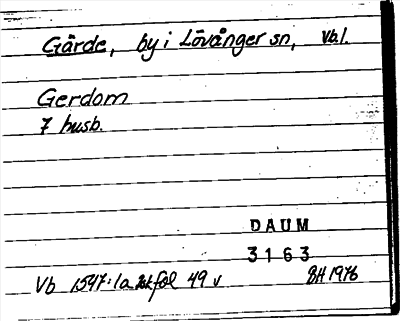 Gärde, by i Lövånger sn, Vb.l.
Gerdom
7 husb.
DAUM
3163
Vb 1547:1a fol 49 v BH 1976